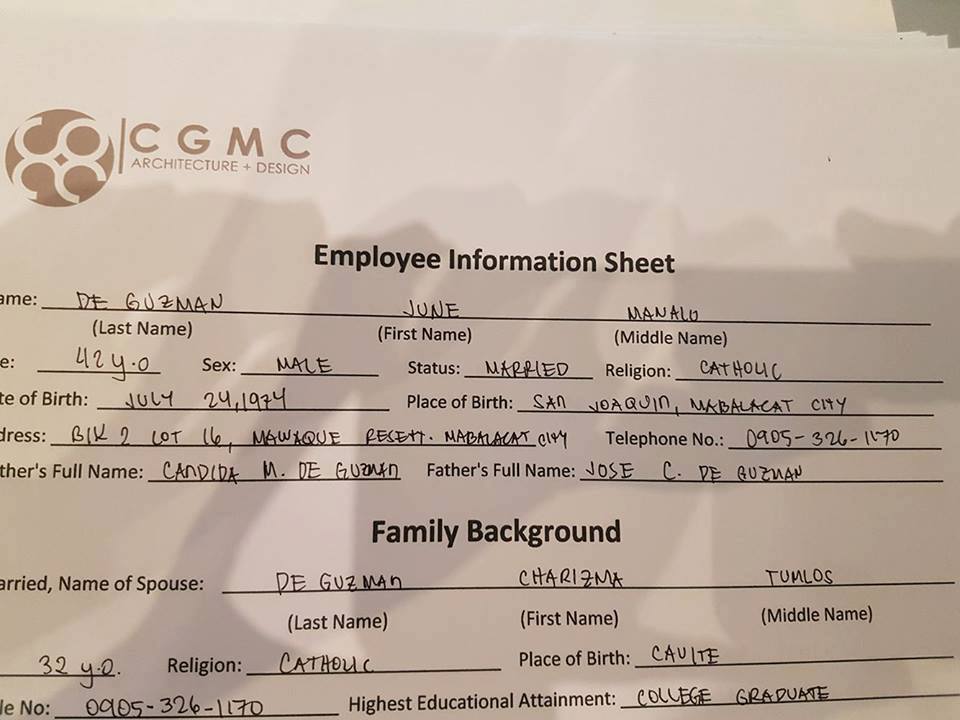 CGMC
ARCHITECTURE + DESIGN
Employee Information Sheet
ame: DE GUZMAN JUNE MANALO
(Last Name) (First Name) (Middle Name)
e: 42 y.o Sex: MALE Status: MARRIED Religion: CATHOLIC
te of Birth: JULY 24, 1974 Place of Birth: SAN JOAQUIN, MABALACAT CITY
dress: BLK 2 LOT 16, MAWAQUE RESETT. MABALACAT CITY Telephone No.: 0905-326-1170
ther's Full Name: CANDIDA M. DE GUZMAN Father's Full Name: JOSE C. DE GUZMAN
Family Background
arried, Name of Spouse: DE GUZMAN CHARIZMA TUMLOS
(Last Name) (First Name) (Middle Name)
32 y.o. Religion: CATHOLIC Place of Birth: CAVITE
le No: 0905-326-1170 Highest Educational Attainment: COLLEGE GRADUATE